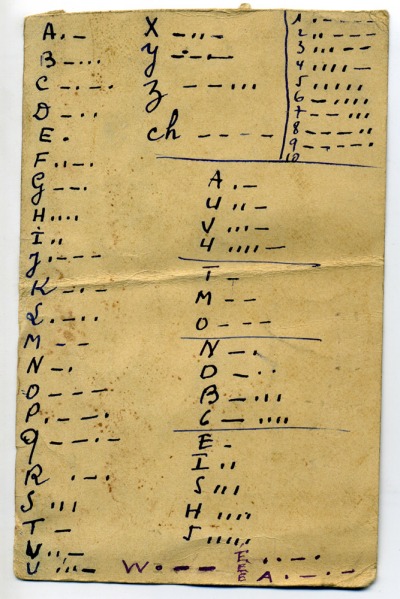 A . –
B – . . .
C – . – .
D – . .
E .
F . . – .
G – – .
H . . . .
I . .
J . – – –
K – . –
L . – . .
M – –
N – .
O – – –
P . – – .
Q – – . –
R . – .
S . . .
T –
U . . –
V . . . –
W . – –
X – . . –
Y – . – –
Z – – . . .
ch – – – –
1 . – – – –
2 . . – – –
3 . . . – –
4 . . . . –
5 . . . . .
6 – . . . .
7 – – . . .
8 – – – . .
9 – – – – .
10
A . –
U . . –
V . . . –
4 . . . . –
T –
M – –
O – – –
N – .
D – . .
B – . . .
6 – . . . .
E .
I . .
S . . .
H . . . .
5 . . . . .
E
E
E A . – . –